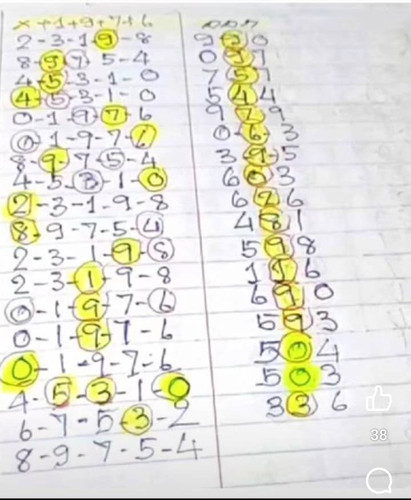 x+1+9+7+6
2-3-1-9-8 990
8-9-7-5-4 0
4-5-3-1-0 757
4-5-3-1-0 544
0-1-9-7-6 979
0-1-9-7-6 0-6-3
8-9-7-5-4 395
4-5-3-1-0 603
2-3-1-9-8 6 6
8-9-7-5-4 481
2-3-1-9-8 598
2-3-1-9-8 1 6
0-1-9-7-6 690
0-1-9-7-6 593
0-1-9-7-6 504
4-5-3-1-0 503
6-7-5-3-2 336
8-9-7-5-4
38